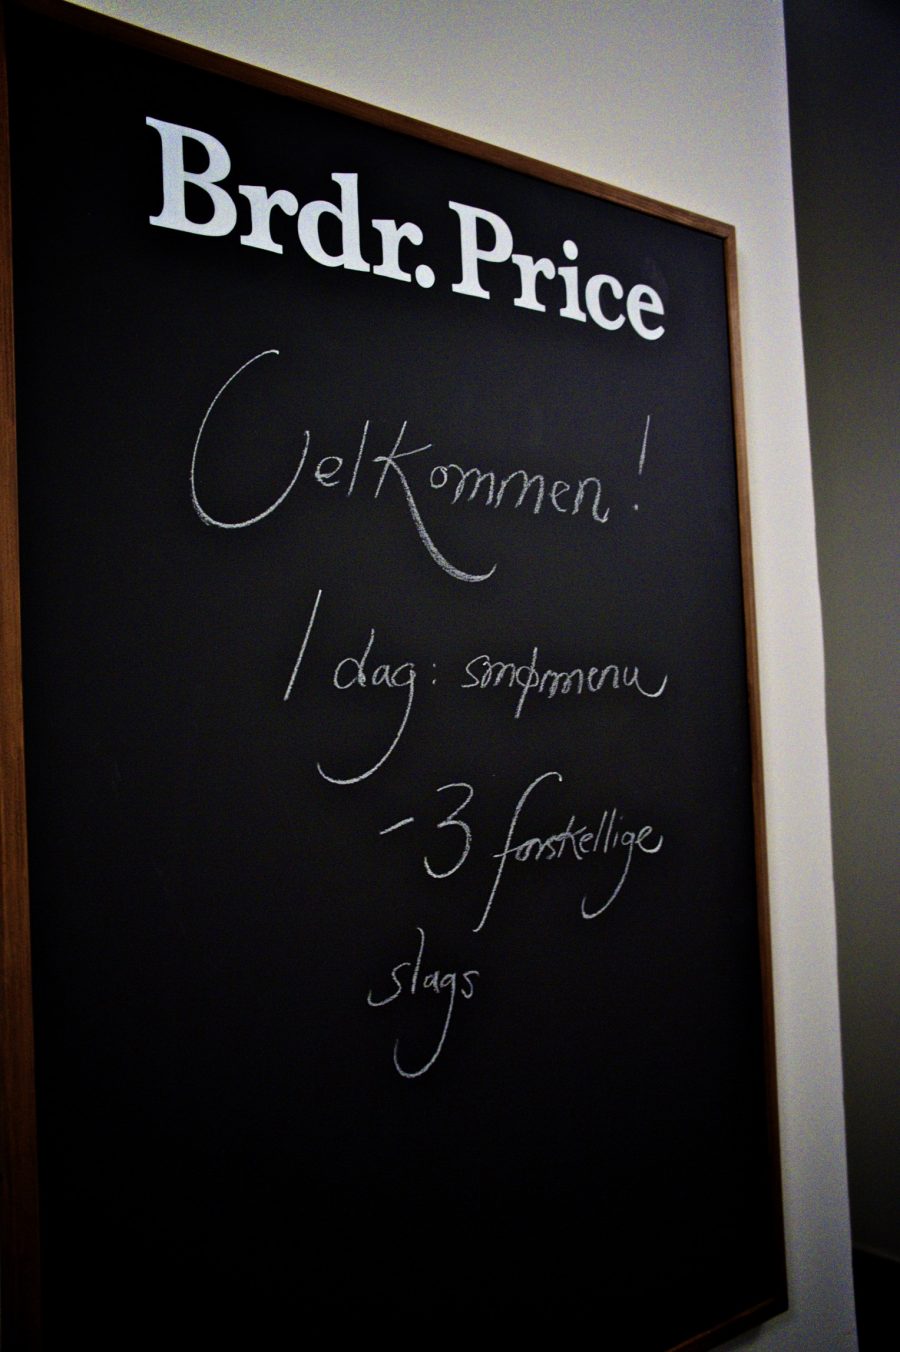 Brdr. Price
Velkommen!
I dag: smørmenu
- 3 forskellige
slags